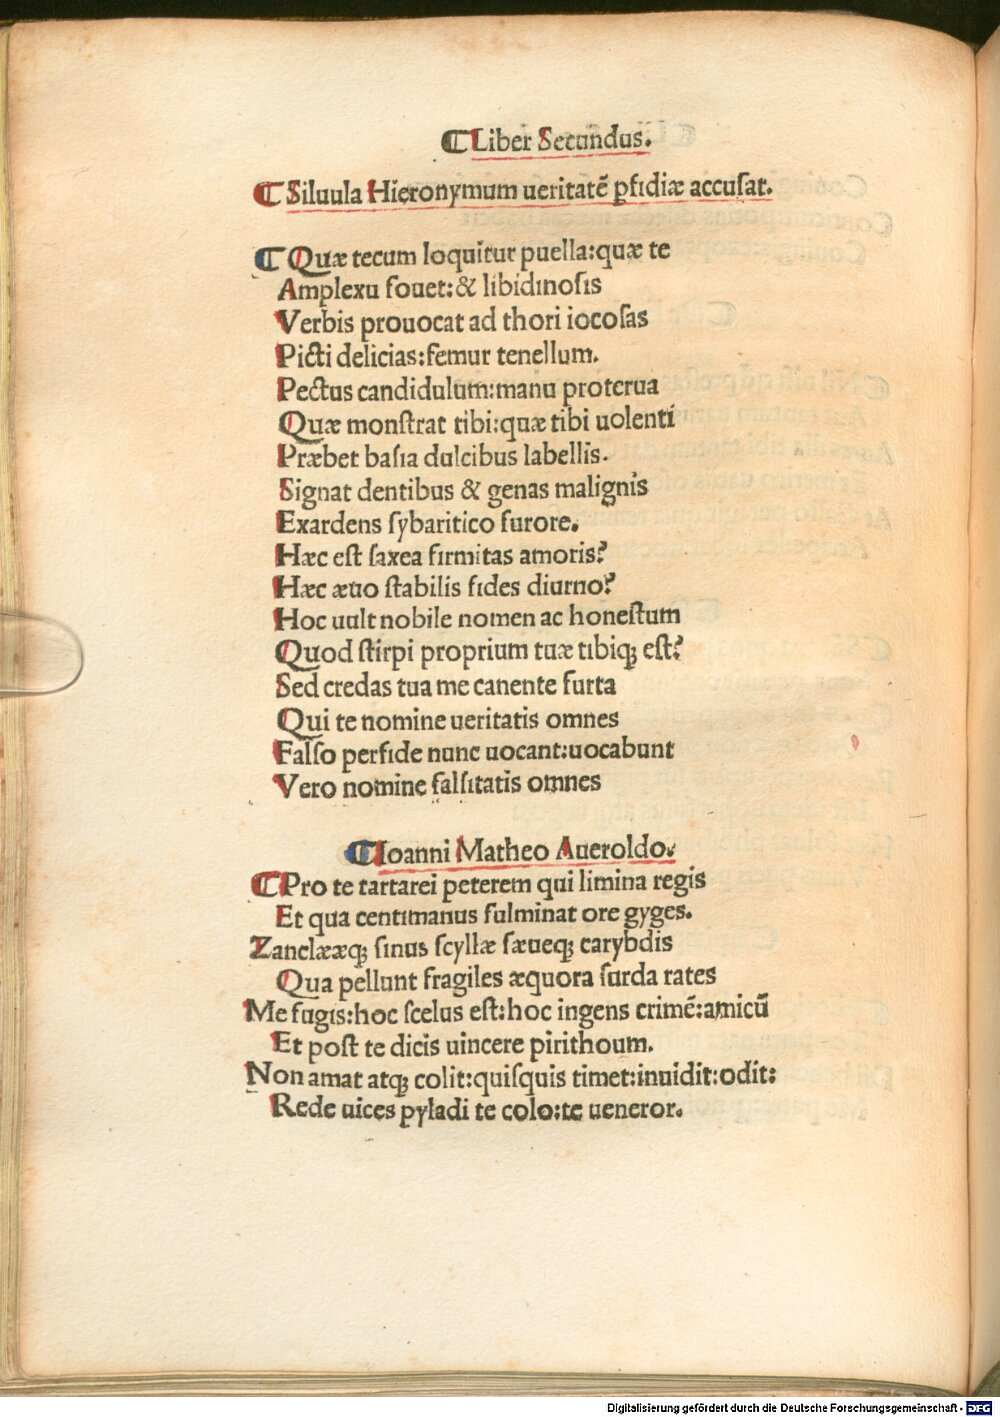 ¶ Liber Secundus.
¶ Siluula Hieronymum ueritatē ꝑfidiæ accuſat.
¶ Quæ tecum loquitur puella:quæ te
Amplexu fouet:& libidinoſis
Verbis prouocat ad thori iocoſas
Picti delicias:femur tenellum.
Pectus candidulum:manu proterua
Quæ monſtrat tibi:quæ tibi uolenti
Præbet baſia dulcibus labellis.
Signat dentibus & genas malignis
Exardens ſybaritico furore.
Hæc eſt ſaxea firmitas amoris?
Hæc æuo ſtabilis fides diurno?
Hoc uult nobile nomen ac honeſtum
Quod ſtirpi proprium tuæ tibiqꝫ eſt?
Sed credas tua me canente furta
Qui te nomine ueritatis omnes
Falſo perfide nunc uocant:uocabunt
Vero nomine falſitatis omnes
¶ Ioanni Matheo Aueroldo.
¶ Pro te tartarei peterem qui limina regis
Et qua centimanus fulminat ore gyges.
Zanclææqꝫ ſinus ſcyllæ ſæueqꝫ carybdis
Qua pellunt fragiles æquora ſurda rates
Me fugis:hoc ſcelus eſt:hoc ingens crimē:amicū
Et poſt te dicis uincere pirithoum.
Non amat atqꝫ colit:quiſquis timet:inuidit:odit:
Rede uices pyladi te colo:te ueneror.
Digitalisierung gefördert durch die Deutsche Forschungsgemeinschaft - DFG